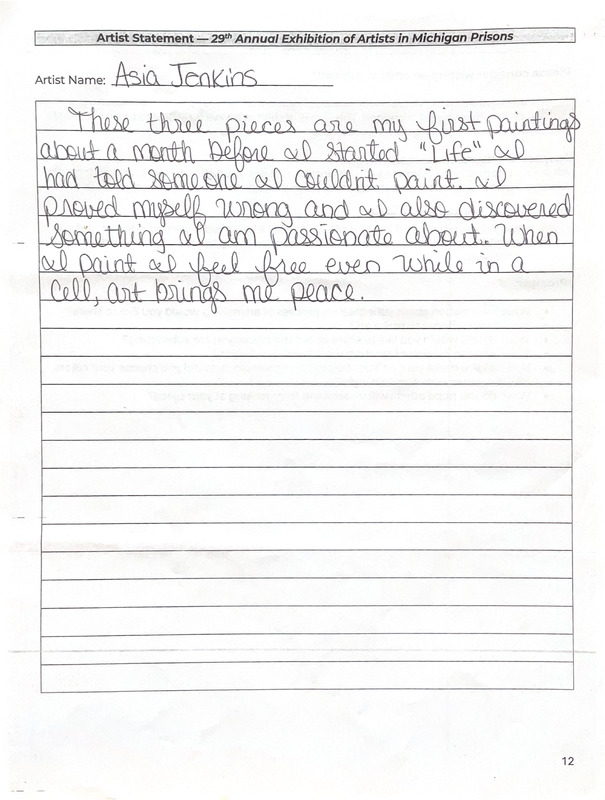 Artist Statement — 29th Annual Exhibition of Artists in Michigan Prisons
Artist Name: Asia Jenkins
These three pieces are my first paintings
about a month before I started "Life" I
had told someone I couldn't paint. I
proved myself wrong and I also discovered
something I am passionate about. When
I paint I feel free even while in a
cell, art brings me peace.
12